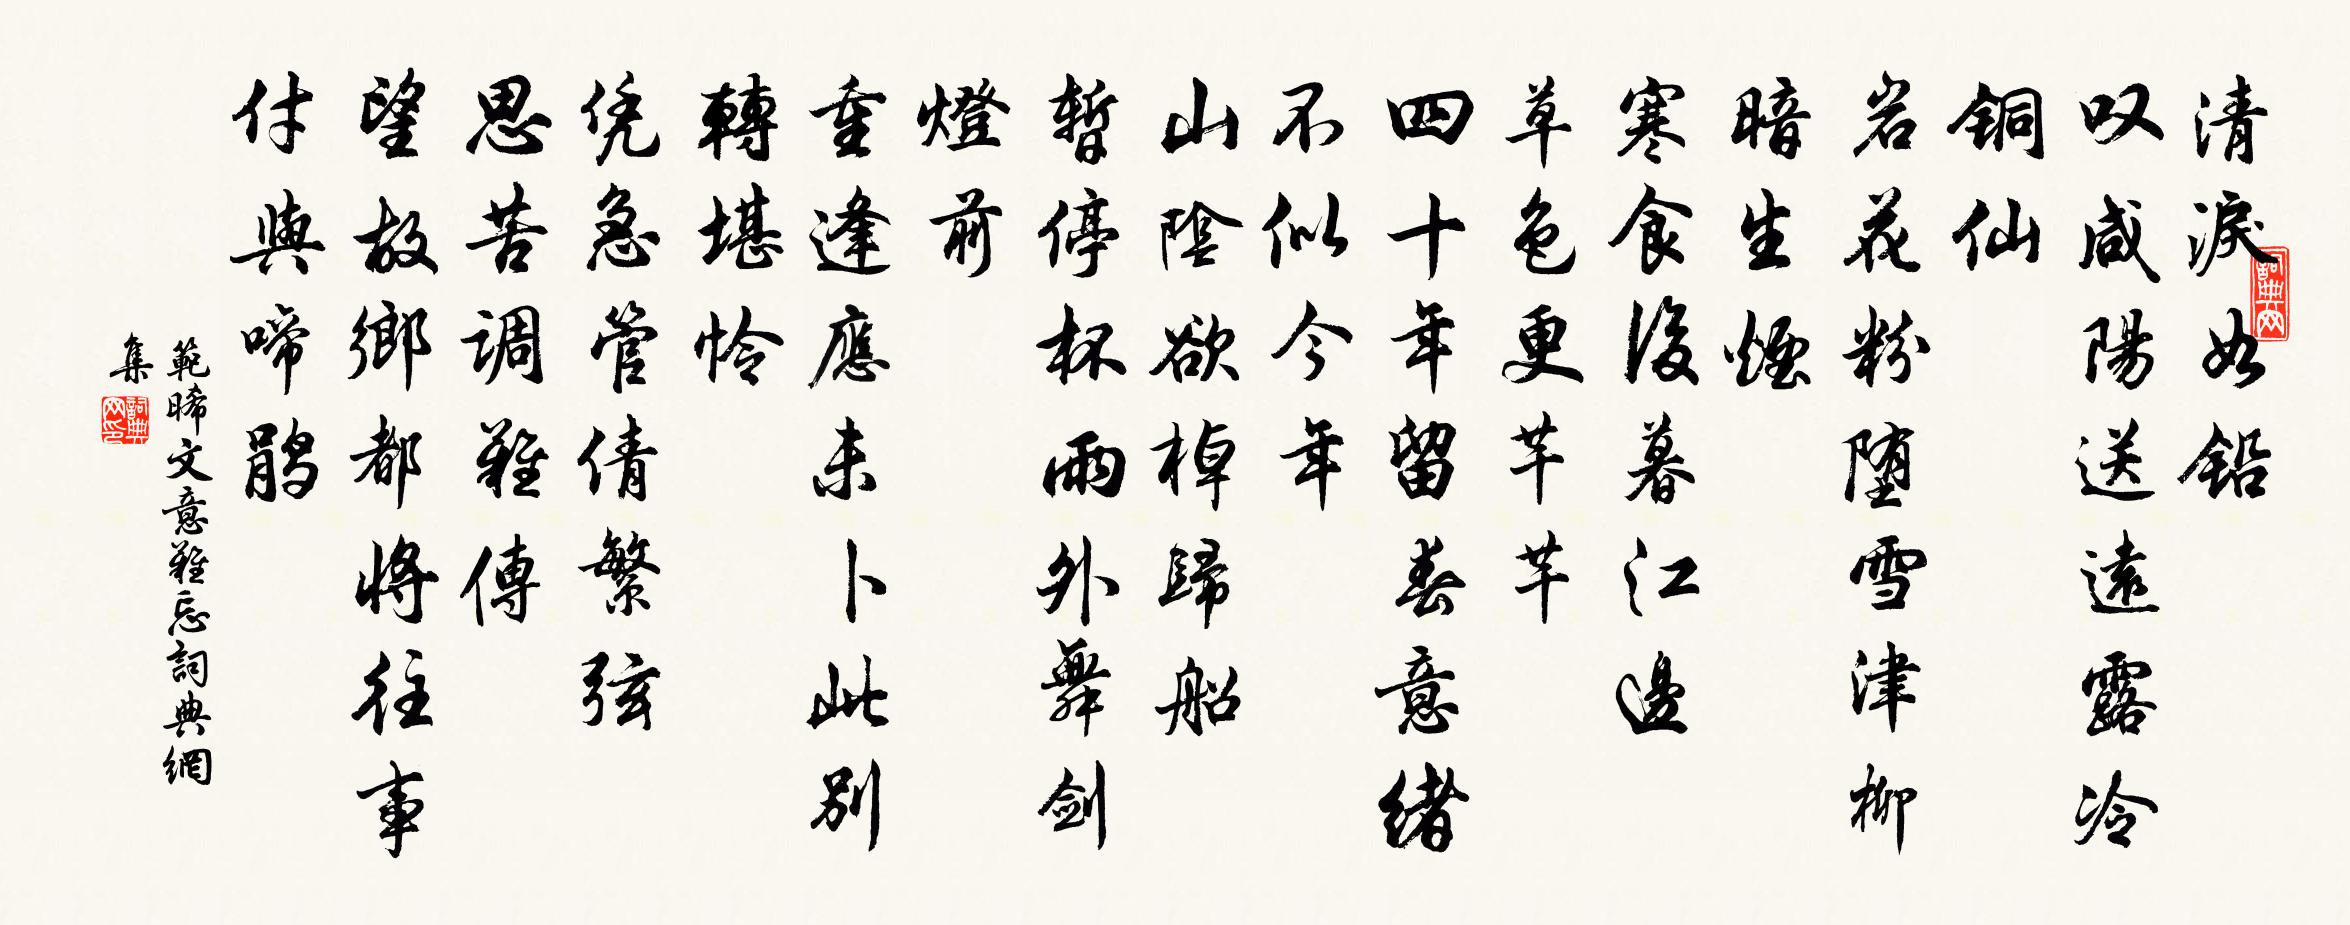 清淚如鉛
叹咸陽送遠露冷
铜仙
岩花粉堕雪津柳
暗生煙
寒食後暮江邊
草色更芊芊
四十年留春意緒
不似今年
山陰欲棹歸船
暫停杯雨外舞劍
燈前
重逢應未卜此別
轉堪怜
凭急管倩繁弦
思苦調難傳
望故鄉都將往事
付與啼鹃
範晞文意難忘詞典網
集
詞典网
詞典网印